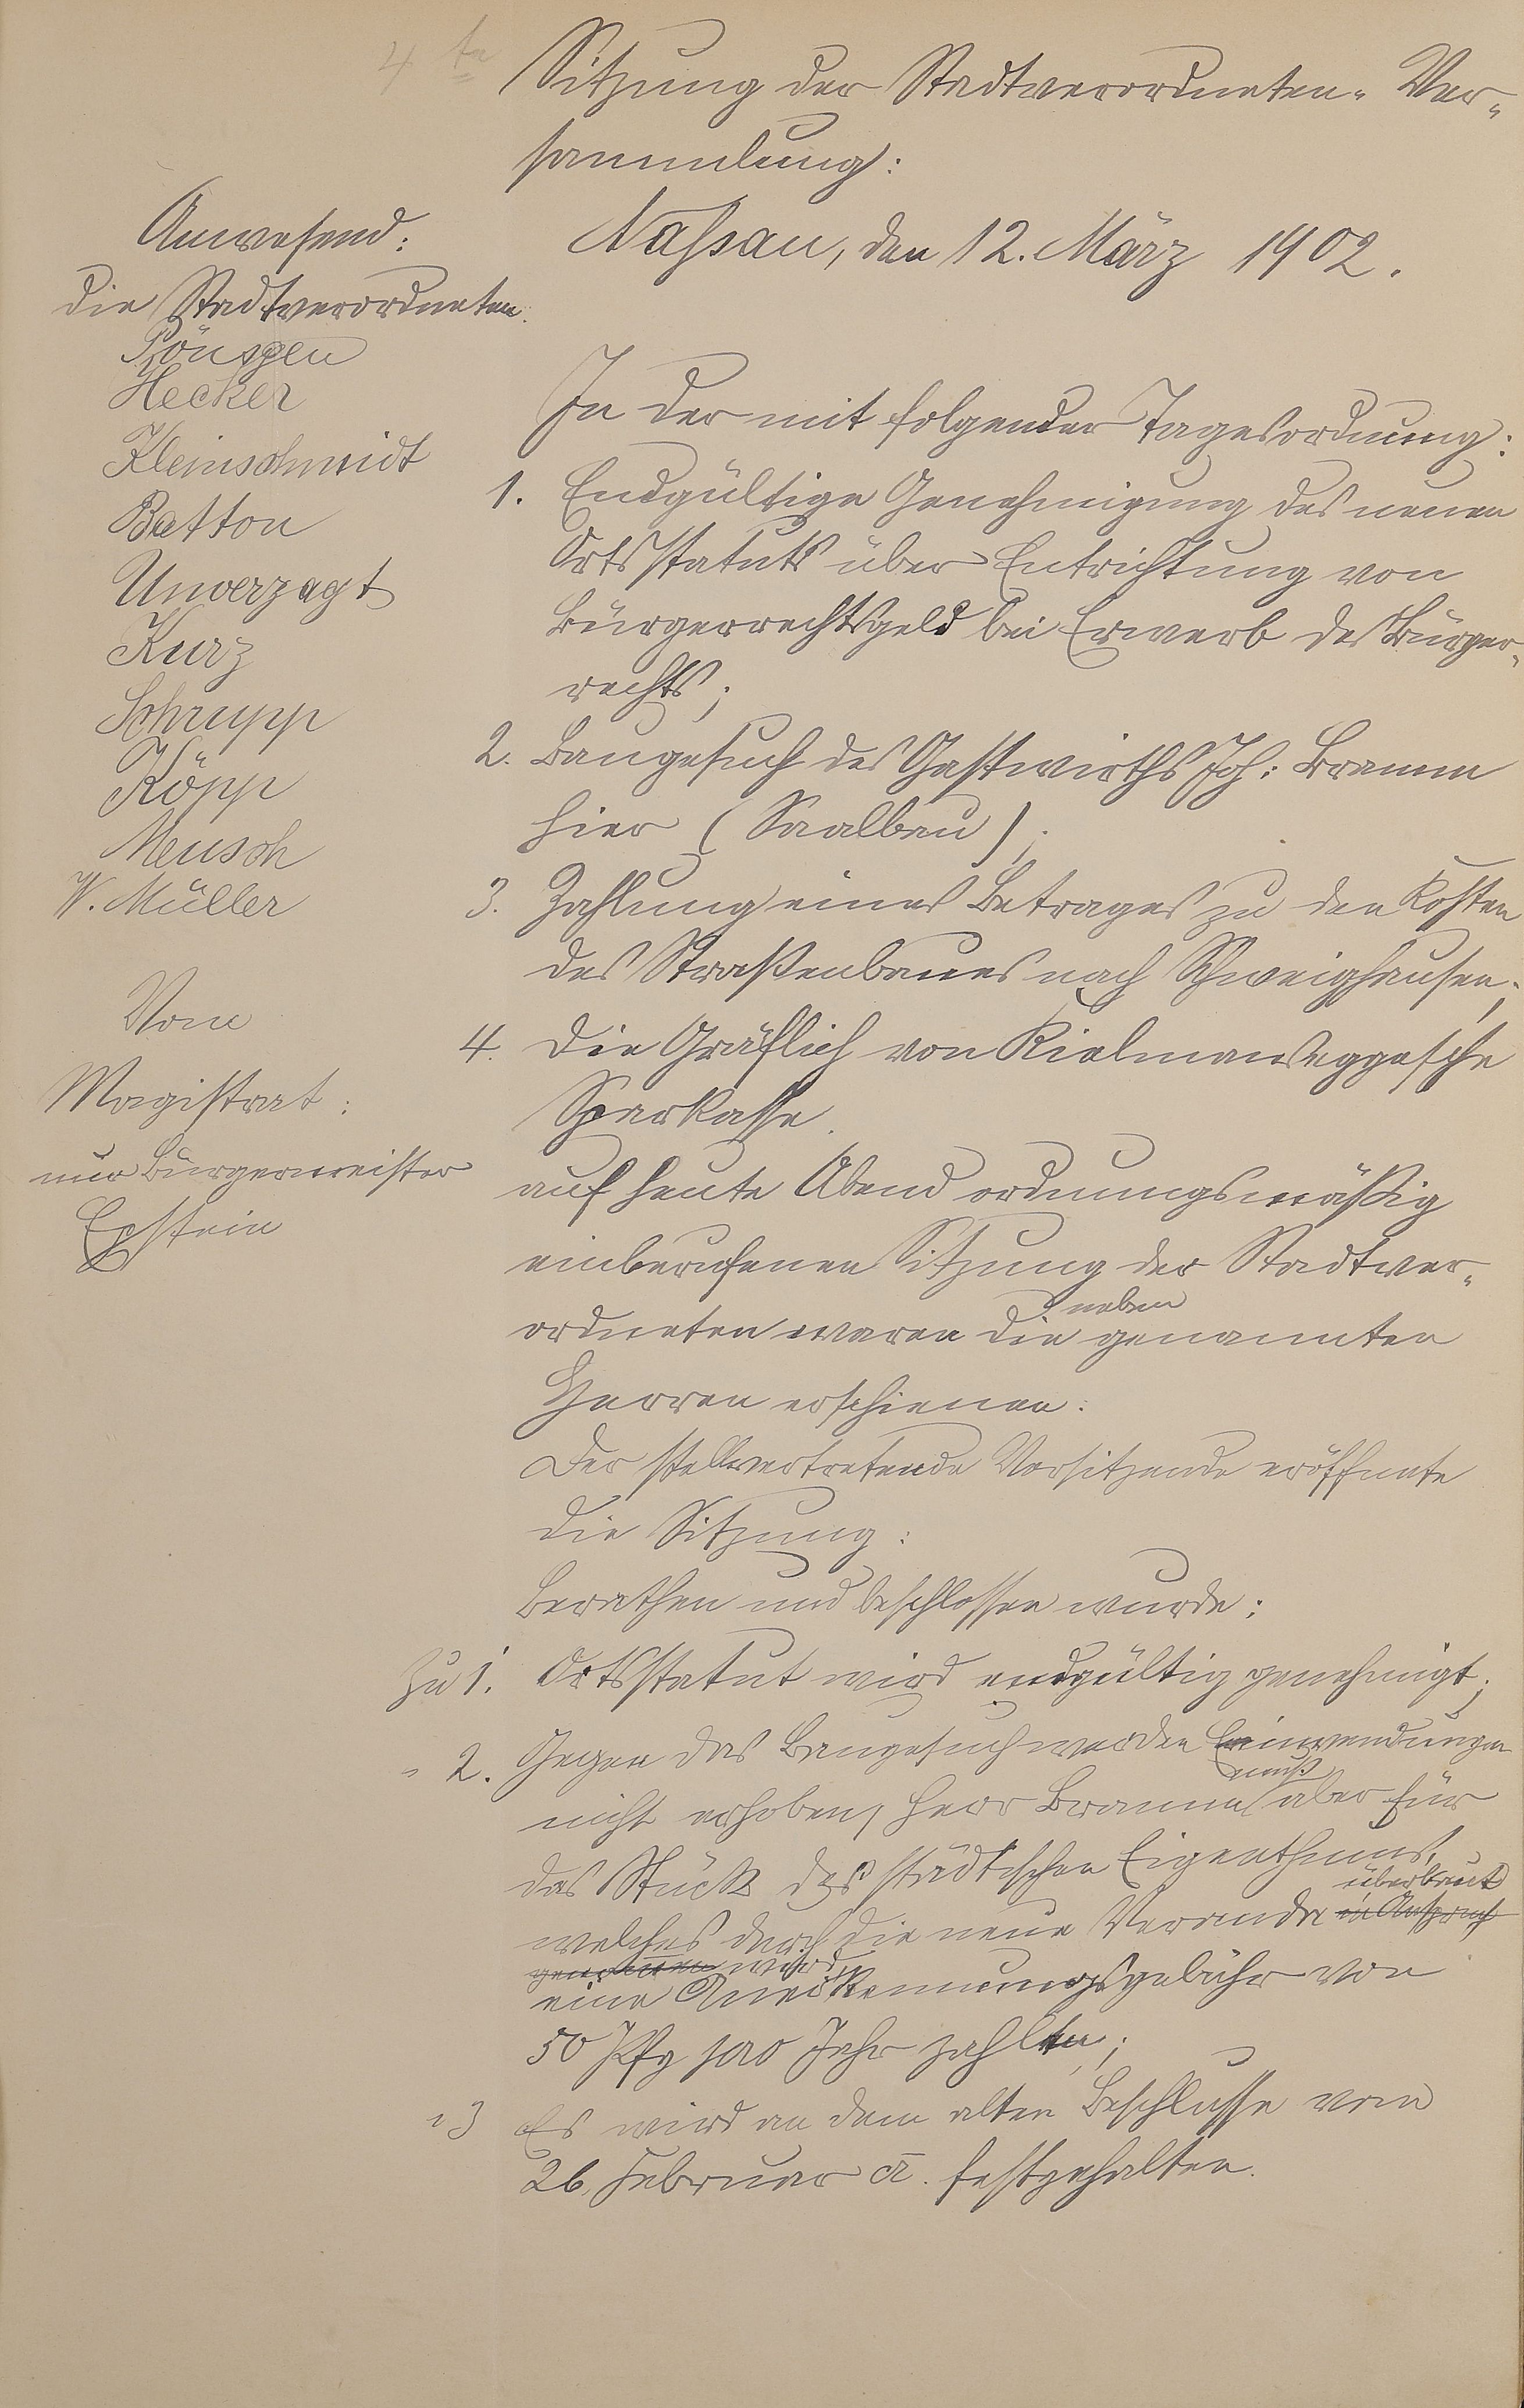 4te Sitzung der Stadtverordneten-Ver-
sammlung:
Nassau, den 12. März 1902.
Anwesend:
die Stadtverordneten:
Pönsgen
Hecker
Kleinschmidt
Batton
Unverzagt
Kurz
Schrupp
Köpp
Meusch
W. Müller
Vom
Magistrat:
nur Bürgermeister
Epstein
In der mit folgender Tagesordnung:
1. Endgültige Genehmigung des neuen
Ortsstatuts über Entrichtung von
Bürgerrechtsgeld bei Erwerb des Bürger-
rechts;
2. Baugesuch des Gastwirths Joh: Bramm
hier (Saalbau);
3. Zahlung eines Betrages zu den Kosten
des Straßenbaues nach Schweighausen;
4. Die Gräflich von Kielmanseggesche
Sparkasse.
auf heute Abend ordnungsmäßig
einberufenen Sitzung der Stadtver-
neben
ordneten waren die genannten
Herren erschienen.
Der stellvertretende Vorsitzende eröffnete
die Sitzung:
Berathen und beschlossen wurde:
Zu 1. Ortsstatut wird endgültig genehmigt;
" 2. Gegen das Baugesuch werden Einwendungen
muß
nicht erhoben, Herr Bramm aber für
das Stück des städtischen Eigenthums,
überbaut
welches durch die neue Veranda in Anspruch
genommen wird,
eine Anerkennungsgebühr von
50 Pfg pro Jahr zahlen;
" 3 Es wird an dem alten Beschlusse vom
26. Februar cr. festgehalten.